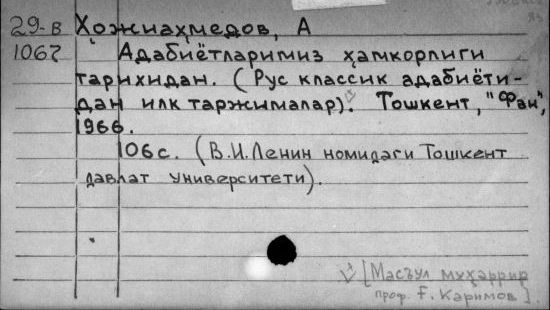 29-в Ҳожиаҳмедов, А
1067 Адабиётларимиз ҳамкорлиги
тарихидан. (Рус классик адабиёти-
дан илк таржималар). Тошкент, "Фан",
1966.
106с. (В.И.Ленин номидаги Тошкент
давлат университети).
[Масъул муҳаррир
проф. Ғ. Каримов].